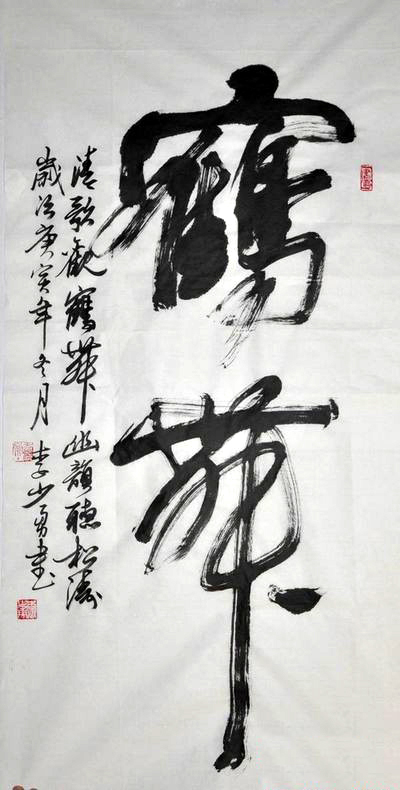 鶴舞
清歌觀鶴舞幽韻聽松濤
歲次庚寅年冬月李少勇書